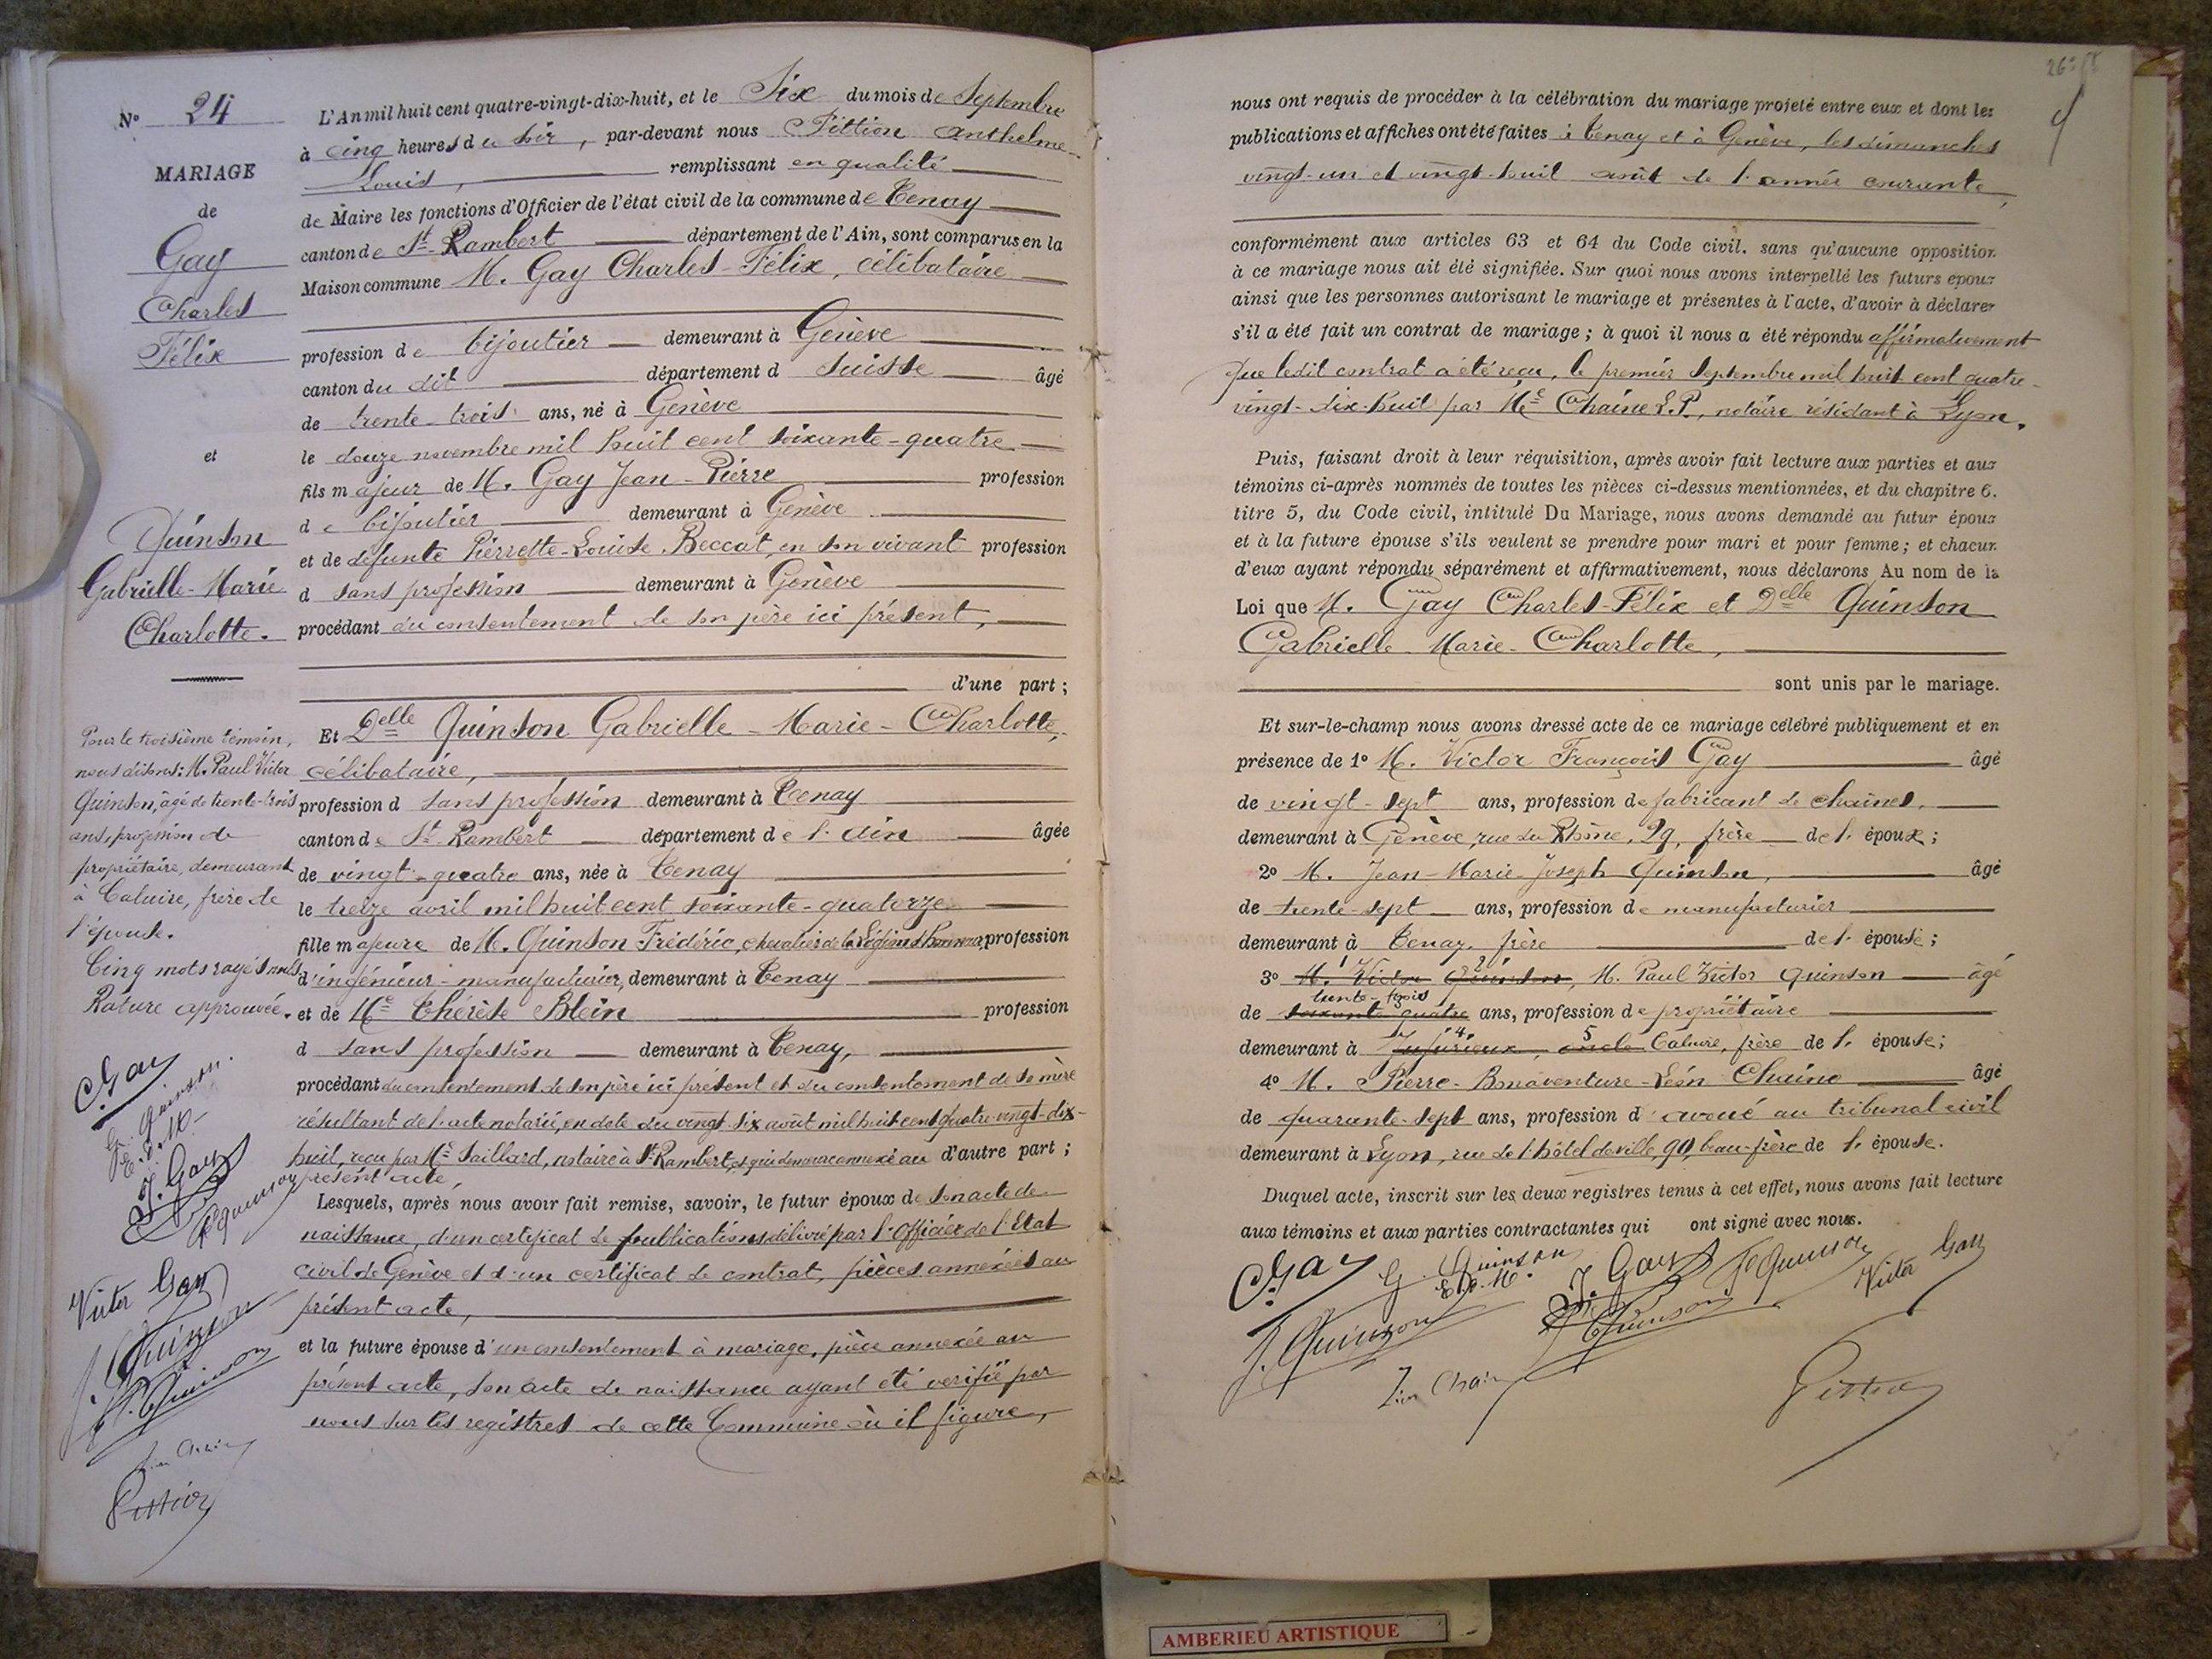 N° 24
MARIAGE
de
Gay
Charles
Félix
et
Quinson
Gabrielle-Marie
Charlotte.
Pour le troisième témoin,
nous disons: M. Paul Victor
Quinson, âgé de trente-trois
ans, profession de
propriétaire, demeurant
à Caluire, frère de
l'épouse.
Cinq mots rayés nuls
Rature approuvée.
C. Gay
G. Quinson.
E. d. M.
J. Gay
F. Quinson
Victor Gay
J. Quinson
P. Quinson
Pittion
L'An mil huit cent quatre-vingt-dix-huit, et le Six du mois de Septembre
à cinq heures du soir, par-devant nous Pittion Anthelme-
Louis, remplissant en qualité
de Maire les fonctions d'Officier de l'état civil de la commune de Tenay
canton de St. Rambert département de l'Ain, sont comparus en la
Maison commune M. Gay Charles-Félix, célibataire
profession de bijoutier demeurant à Genève
canton du dit département d Suisse âgé
de trente-trois ans, né à Genève
le douze novembre mil huit cent soixante-quatre
fils majeur de M. Gay Jean-Pierre profession
de bijoutier demeurant à Genève
et de defunte Pierrette-Louise Beccat, en son vivant profession
d sans profession demeurant à Genève
procédant du consentement de son père ici présent,
d'une part;
Et Delle Quinson Gabrielle-Marie-Charlotte,
célibataire,
profession d sans profession demeurant à Tenay
canton de St. Rambert département de l'Ain âgée
de vingt-quatre ans, née à Tenay
le treize avril mil huit cent soixante-quatorze
fille majeure de M. Quinson Frédéric, chevalier de la Légion d'honneur, profession
d'ingénieur-manufacturier, demeurant à Tenay
et de Me Thérèse Blein profession
d sans profession demeurant à Tenay,
procédant du consentement de son père ici présent et du consentement de sa mère
résultant de l'acte notarié, en date du vingt-six août mil huit cent quatre-vingt-dix-
huit, reçu par Me Saillard, notaire à St Rambert, et qui demeura annexé au d'autre part;
présent acte,
Lesquels, après nous avoir fait remise, savoir, le futur époux de son acte de
naissance, d'un certificat de publications délivré par l'Officier de l'Etat
civil de Genève et d'un certificat de contrat, pièces annexées au
présent acte,
et la future épouse d'un consentement à mariage, pièce annexée au
présent acte, son acte de naissance ayant été verifié par
nous sur les registres de cette Commune où il figure,
nous ont requis de procéder à la célébration du mariage projeté entre eux et dont les
publications et affiches ont été faites à Tenay et à Genève, les dimanches
vingt-un et vingt-huit août de l'année courante,
conformément aux articles 63 et 64 du Code civil. sans qu'aucune opposition
à ce mariage nous ait été signifiée. Sur quoi nous avons interpellé les futurs époux
ainsi que les personnes autorisant le mariage et présentes à l'acte, d'avoir à déclarer
s'il a été fait un contrat de mariage; à quoi il nous a été répondu affirmativement
que ledit contrat a été reçu, le premier Septembre mil huit cent quatre-
vingt-dix-huit par Me Chaine L. P., notaire résidant à Lyon.
Puis, faisant droit à leur réquisition, après avoir fait lecture aux parties et aux
témoins ci-après nommés de toutes les pièces ci-dessus mentionnées, et du chapitre 6.
titre 5, du Code civil, intitulé Du Mariage, nous avons demandé au futur époux
et à la future épouse s'ils veulent se prendre pour mari et pour femme; et chacun
d'eux ayant répondu séparément et affirmativement, nous déclarons Au nom de la
Loi que M. Gay Charles-Félix et Delle Quinson
Gabrielle-Marie-Charlotte,
sont unis par le mariage.
Et sur-le-champ nous avons dressé acte de ce mariage célébré publiquement et en
présence de 1° M. Victor François Gay âgé
de vingt-sept ans, profession de fabricant de chaînes,
demeurant à Genève, rue du Rhône, 29, frère de l'époux;
2° M. Jean-Marie-Joseph Quinson, âgé
de trente-sept ans, profession de manufacturier
demeurant à Tenay, frère de l'épouse;
3° M. Victor Quinson, M. Paul Victor Quinson âgé
trente-trois
de soixante quatre ans, profession de propriétaire
demeurant à Jujurieux, oncle Caluire, frère de l'épouse;
4° M. Pierre-Bonaventure-Léon Chaine âgé
de quarante-sept ans, profession d'avoué au tribunal civil
demeurant à Lyon, rue de l'hôtel de ville, 90, beau-frère de l'épouse.
Duquel acte, inscrit sur les deux registres tenus à cet effet, nous avons fait lecture
aux témoins et aux parties contractantes qui ont signé avec nous.
C. Gay
G. Quinson
E. d. M.
J. Gay
F. Quinson
Victor Gay
J. Quinson
P. Quinson
Pittion
AMBERIEU ARTISTIQUE